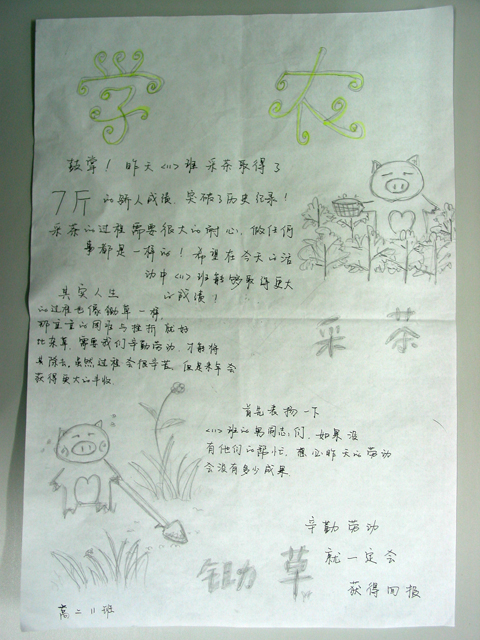 学农
鼓掌！昨天<11>班采茶取得了
7斤的骄人成绩，突破了历史纪录！
采茶的过程需要很大的耐心，做任何
事都是一样的！希望在今天的活
动中<11>班能够取得更大
的成绩！
采茶
其实人生
的过程也像锄草一样，
那重重的困难与挫折就好
比杂草，需要我们辛勤劳动，才能将
其除去。虽然过程会很辛苦，但是来年会
获得更大的丰收。
首先表扬一下
<11>班的男同志们，如果没
有他们的帮忙，想必昨天的劳动
会没有多少成果
锄草
辛勤劳动
就一定会
获得回报
高二11班